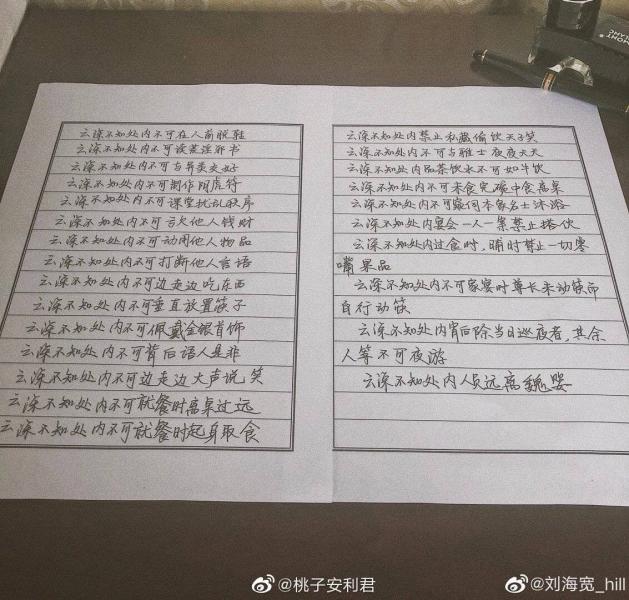 云深不知处内不可在人前脱鞋
云深不知处内不可谈类淫邪书
云深不知处内不可与异类交好
云深不知处内不可制作阴虎符
云深不知处内不可课堂扰乱秩序
云深不知处内不可亏欠他人钱财
云深不知处内不可动用他人物品
云深不知处内不可打断他人言语
云深不知处内不可边走边吃东西
云深不知处内不可垂直放置筷子
云深不知处内不可佩戴金银首饰
云深不知处内不可背后语人是非
云深不知处内不可边走边大声说笑
云深不知处内不可就餐时离桌过远
云深不知处内不可就餐时起身取食
云深不知处内禁止私藏偷饮天子笑
云深不知处内不可与雅士夜夜天天
云深不知处内品茶饮水不可如牛饮
云深不知处内不可未食完碗中食离桌
云深不知处内不可窥伺本家名士沐浴
云深不知处内宴会一人一案禁止搭伙
云深不知处内过食时、晡时禁止一切零
嘴果品
云深不知处内不可家宴时尊长未动筷而
自行动筷
云深不知处内宵后除当日巡夜者,其余
人等不可夜游
云深不知处内人员远离魏婴
MONT
BLANC
@桃子安利君
@刘海宽_hill